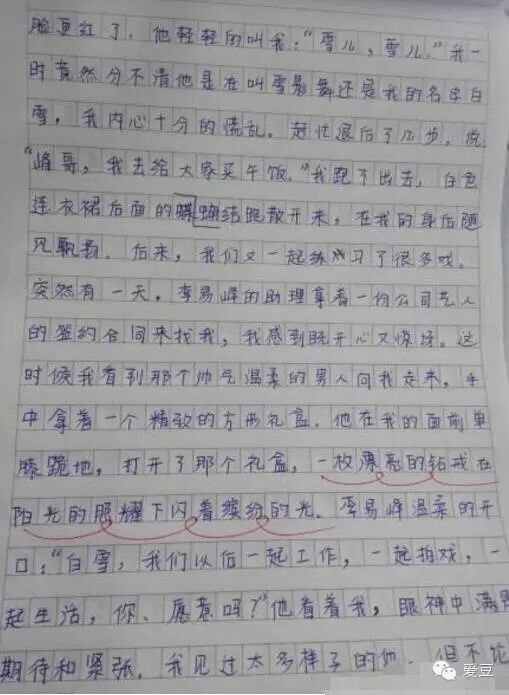 脸更红了。他轻轻的叫我：“雪儿，雪儿。”我一
时竟然分不清他是在叫雪影舞还是我的名字白
雪，我内心十分的慌乱。赶忙退后了几步。说
“峰哥，我去给大家买午饭。”我跑了出去，白色
连衣裙后面的蝶蝴结跑散开来，在我的身后随
风飘扬。后来，我们又一起练习了很多戏。
突然有一天，李易峰的助理拿着一份公司艺人
的签约合同来找我，我感到既开心又惊讶。这
时候我看到那个帅气温柔的男人向我走来，手
中拿着一个精致的方形礼盒。他在我的面前单
膝跪地，打开了那个礼盒，一枚漂亮的钻戒在
阳光的照耀下闪着缤纷的光。李易峰温柔的开
口：“白雪，我们以后一起工作，一起拍戏，一
起生活，你、愿意吗？”他看着我，眼神中满是
期待和紧张。我见过太多样子的他。但不论
爱豆